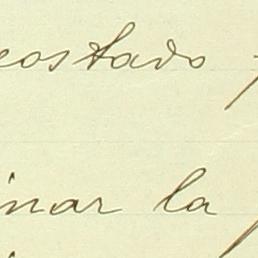 costado
inar la